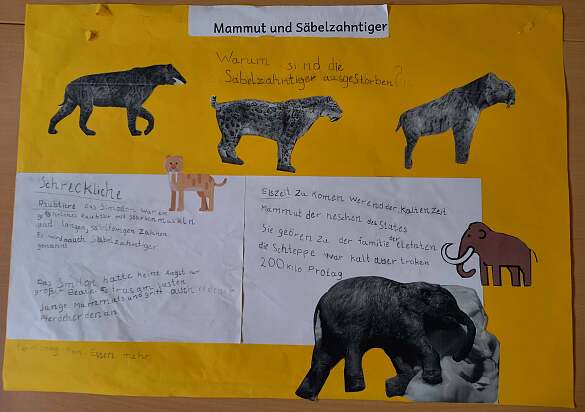 Mammut und Säbelzahntiger
Warum sind die
Säbelzahntiger ausgestorben?
Schreckliche
Raubtiere Das Smilodon waren
gefährliches Raubtier mit starken muckeln
und langen, säbelförmigen Zähnen
Er wird auch Säbelzahntiger
genannt
Das Smilodon hatte keine Angst vor
große Beute. Es fras am liebsten
junge Mammuts und griff auch
Pferdeherden an
Essen mehr.
Eiszeit zu Komen werend der Kalten Zeit
Mammut der neshon des States
Sie gebören zu der familie der Elefaten
die Schteppe war kalt aber troken
200 Kilo Protag